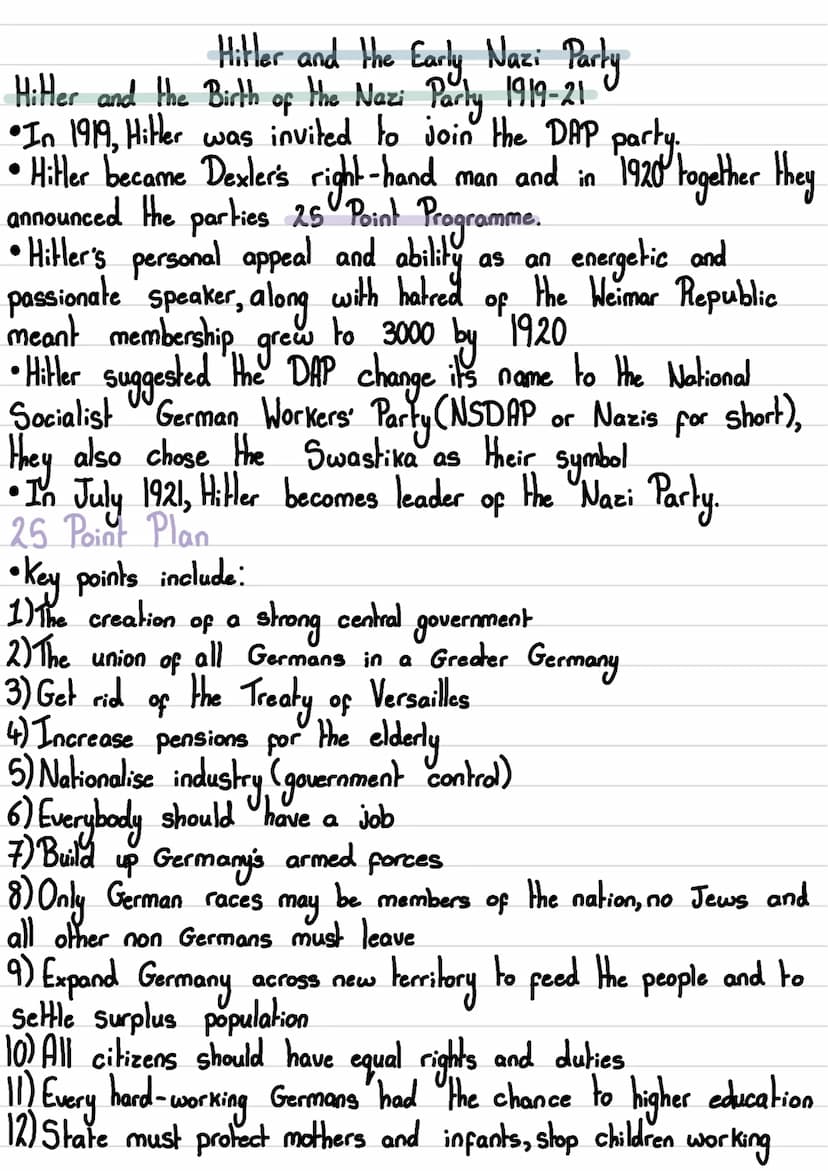 Hitler and the Early Nazi Party
Hitler and the Birth of the Nazi Party 1919-21
•In 1919, Hitler was invited to join the DAP party.
• Hitler became Dexler's right-hand man and in 1920 together they
announced the parties 25 Point Programme.
•Hitler's personal appeal and ability as an energetic and
passionate speaker, along with hatred of the Weimar Republic
meant membership grew to 3000 by 1920
•Hitler suggested the DAP change its name to the National
Socialist German Workers' Party (NSDAP or Nazis for short),
they also chose the Swastika as their symbol
•In July 1921, Hitler becomes leader of the Nazi Party.
25 Point Plan
•Key points include:
1)The creation of a strong central government
2)The union of all Germans in a Greater Germany
3)Get rid of the Treaty of Versailles
4)Increase pensions for the elderly
5)Nationalise industry (government control)
6)Everybody should have a job
7)Build up Germany's armed forces
8)Only German races may be members of the nation, no Jews and
all other non Germans must leave
9) Expand Germany across new territory to feed the people and to
settle surplus population
10) All citizens should have equal rights and duties
11) Every hard-working Germans had the chance to higher education
12)State must protect mothers and infants, stop children working